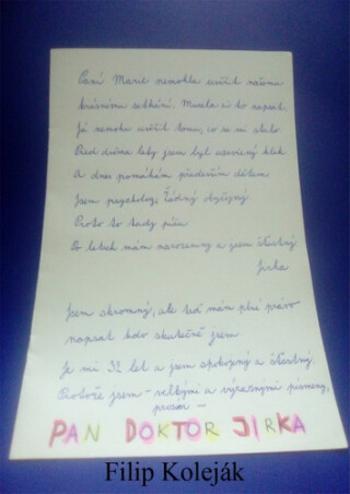 Paní Marie nemohla uvěřit našemu
krásnému setkání. Musela si to napsat.
Já nemohu uvěřit tomu, co se mi stalo.
Před dvěma lety jsem byl uzavřený kluk
A dnes pomáhám především dětem
Jsem psycholog, Žádný obyčejný
Proto to tady píšu
Po letech mám narozeniny a jsem šťastný
Jirka
Jsem skromný, ale teď mám plné právo
napsat kdo skutečně jsem
Je mi 32 let a jsem spokojený a šťastný.
Protože jsem - velkými a výraznými písmeny,
prosím -
PAN DOKTOR JIRKA
Filip Koleják